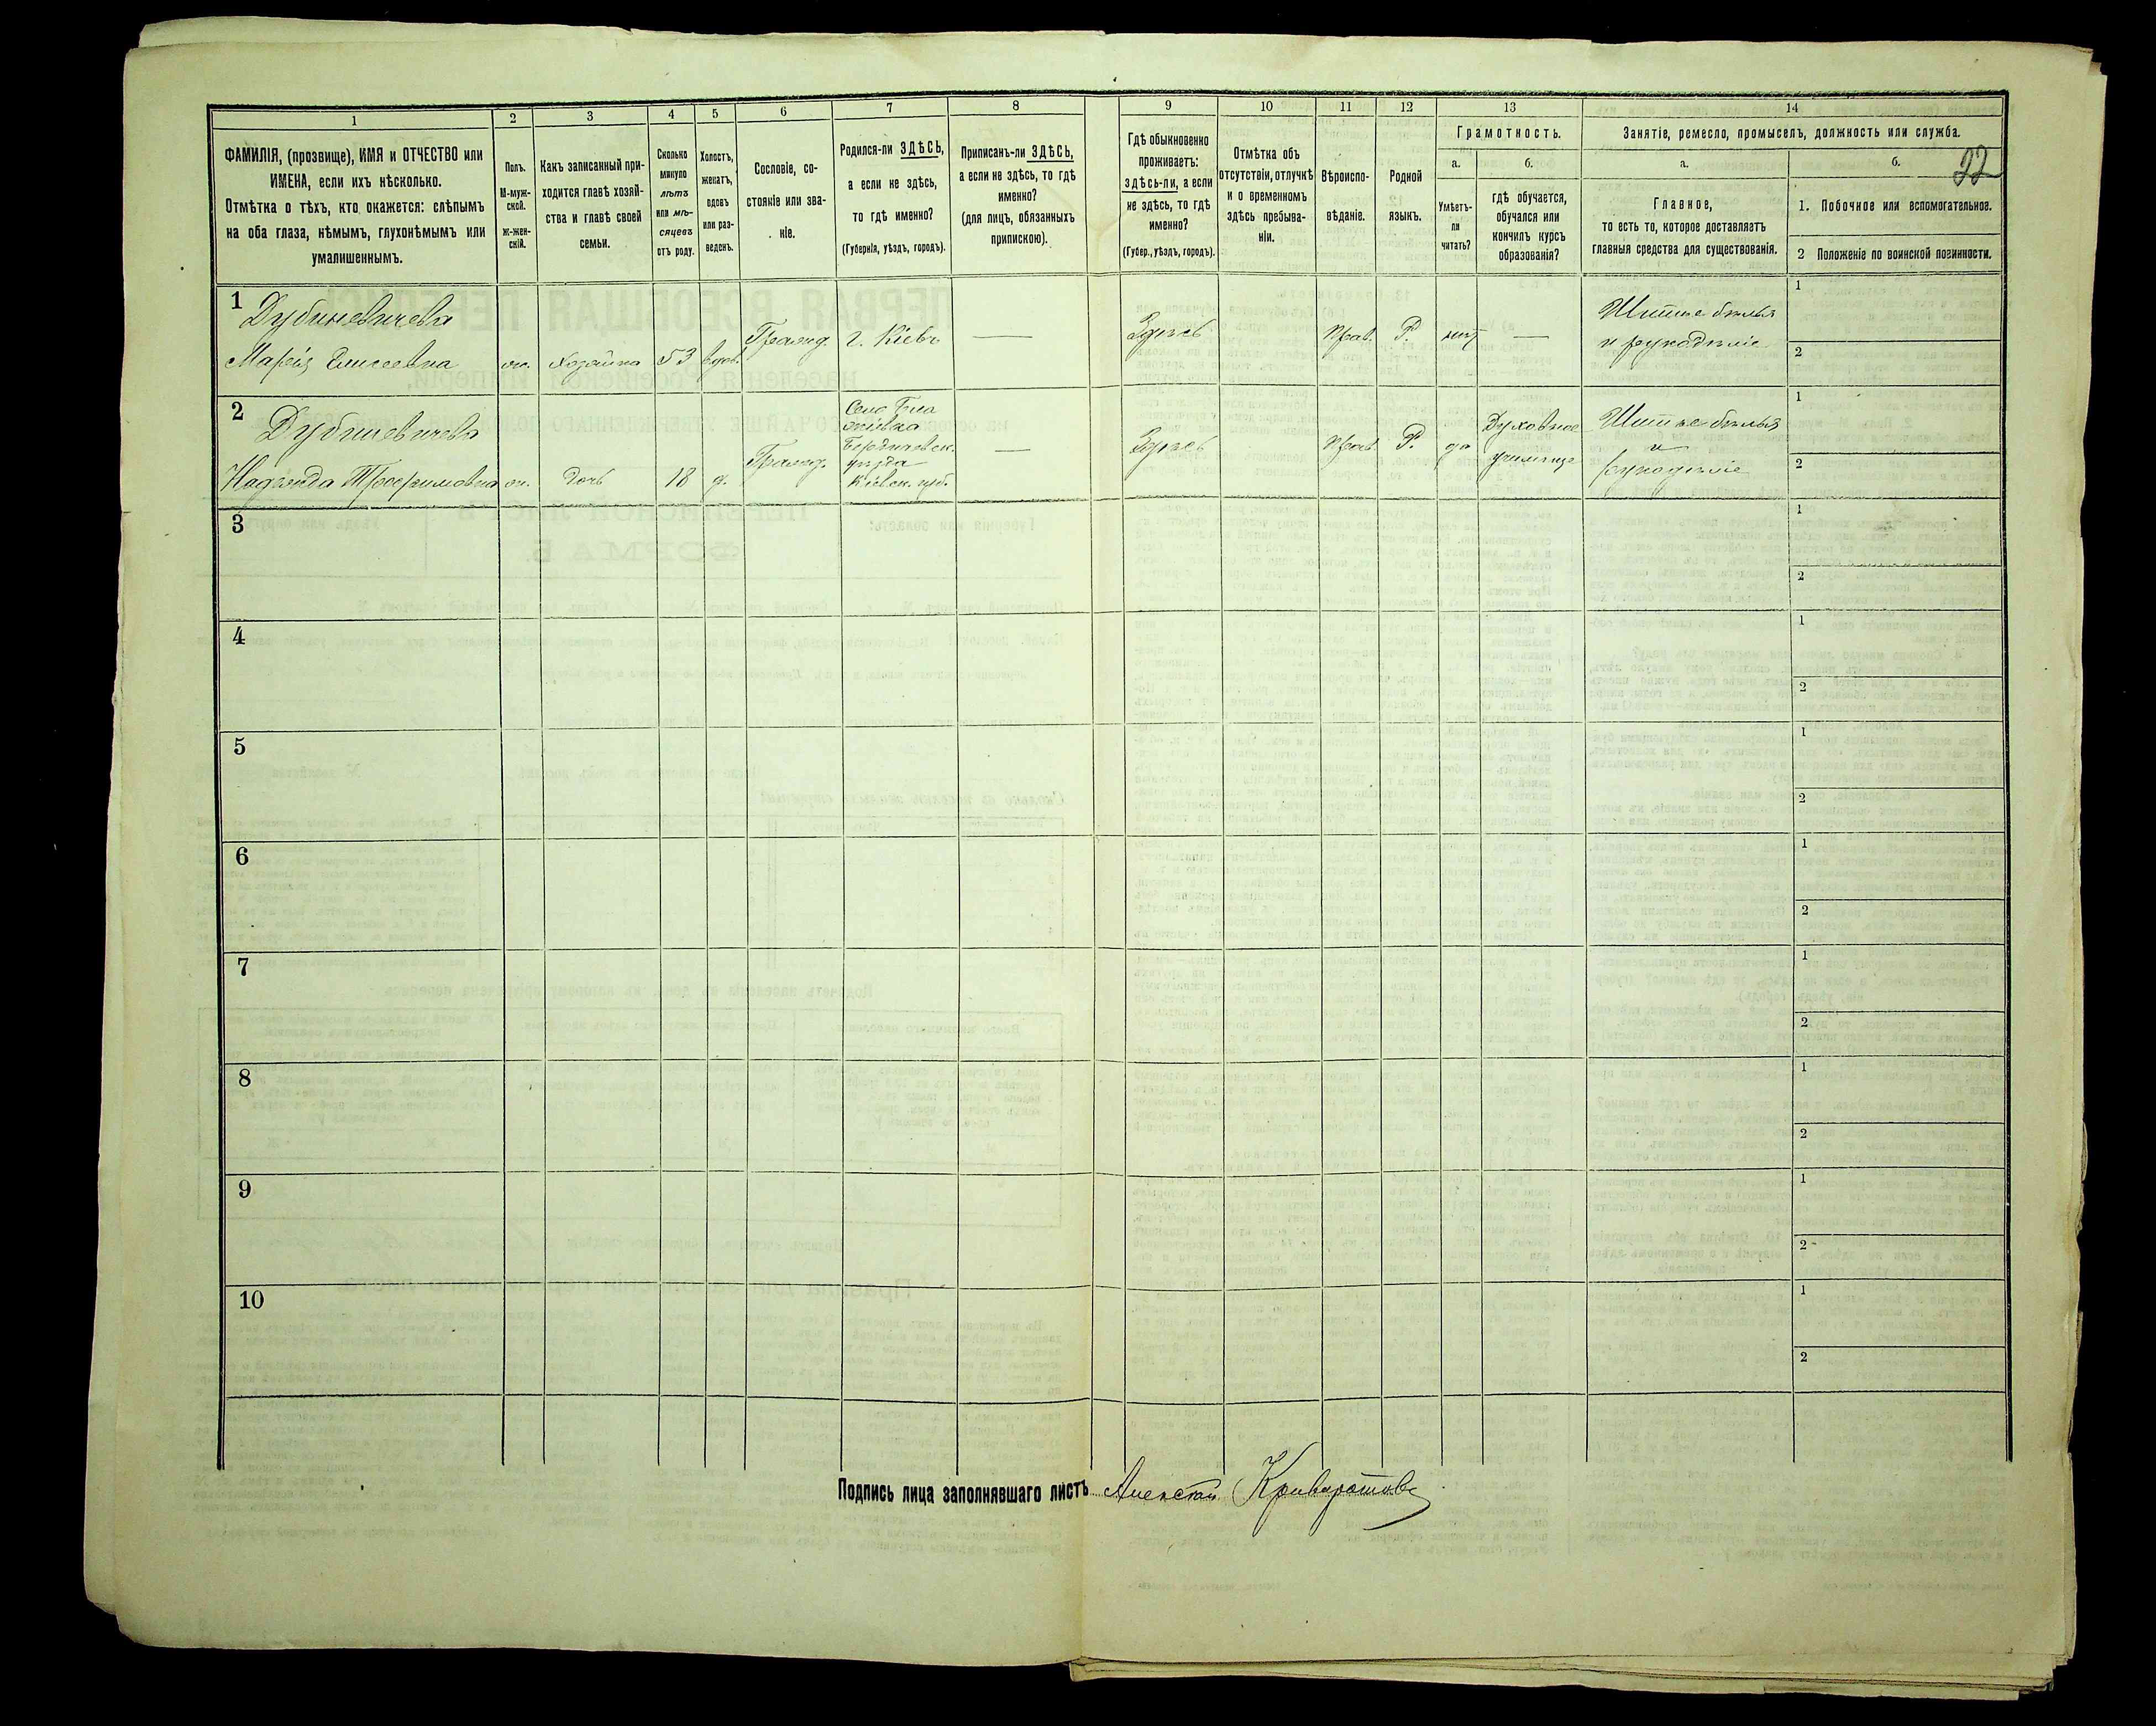 1
2
3
4
5
6
7
8
9
10
11
12
13
14
ФАМИЛІЯ, (прозвище), ИМЯ и ОТЧЕСТВО или
ИМЕНА, если ихъ нѣсколько.
Отмѣтка о тѣхъ, кто окажется: слѣпымъ
на оба глаза, нѣмымъ, глухонѣмымъ или
умалишеннымъ.
Полъ.
М-муж-
ской.
ж-жен-
скій.
Какъ записанный при-
ходится главѣ хозяй-
ства и главѣ своей
семьи.
Сколько
минуло
лѣтъ
или мѣ-
сяцевъ
отъ роду.
Холостъ,
женатъ,
вдовъ
или раз-
веденъ.
Сословіе, со-
стояніе или зва-
ніе.
Родился-ли ЗДѢСЬ,
а если не здѣсь,
то гдѣ именно?
(Губернія, уѣздъ, городъ).
Приписанъ-ли ЗДѢСЬ,
а если не здѣсь, то гдѣ
именно?
(для лицъ, обязанныхъ
припискою).
Гдѣ обыкновенно
проживаетъ:
здѣсь-ли, а если
не здѣсь, то гдѣ
именно?
(Губер., уѣздъ, городъ).
Отмѣтка объ
отсутствіи, отлучкѣ
и о временномъ
здѣсь пребыва-
ніи.
Вѣроиспо-
вѣданіе.
Родной
языкъ.
Грамотность.
а.
Умѣетъ-
ли
читать?
б.
гдѣ обучается,
обучался или
кончилъ курсъ
образованія?
Занятіе, ремесло, промыселъ, должность или служба.
а.
Главное,
то есть то, которое доставляетъ
главныя средства для существованія.
б.
22
1. Побочное или вспомогательное.
2 Положеніе по воинской повинности.
1
Дубиневичева
Марія Елисеевна
ж.
хозяйка
53
вдов.
Гражд.
г. Кіевъ
—
Здѣсь
Прав.
Р.
нѣт
—
Шитье бѣлья
и рукодѣліе
1
2
2
Дубиневичева
Надежда Трофимовна
ж.
дочь
18
д.
Гражд.
Село
Бердичевск.
уѣзда
Кіевск. губ.
—
Здѣсь
Прав.
Р.
да
Духовное
училище
Шитье бѣлья
и
рукодѣліе
1
2
3
1
2
4
1
2
5
1
2
6
1
2
7
1
2
8
1
2
9
1
2
10
1
2
Подпись лица заполнявшаго листъ Алексѣй Криворотовъ